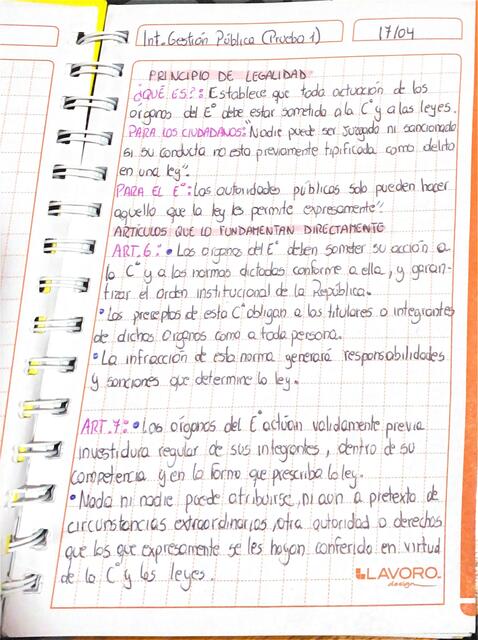 Int. Gestión Pública (Prueba 1)
17/04
PRINCIPIO DE LEGALIDAD
¿QUÉ ES?: Establece que toda actuación de los
órganos del E° debe estar sometido a la C° y a las leyes.
PARA LOS CIUDADANOS: "Nadie puede ser juzgado ni sancionado
si su conducta no esta previamente tipificada como delito
en una ley".
PARA EL E°: Las autoridades públicas solo pueden hacer
aquello que la ley les permite expresamente".
ARTÍCULOS QUE LO FUNDAMENTAN DIRECTAMENTE
ART. 6: • Los órganos del E° deben someter su acción a
la C° y a las normas dictadas conforme a ella, y garan-
tizar el orden institucional de la República.
• Los preceptos de esta C° obligan a los titulares o integrantes
de dichos órganos como a toda persona.
• La infracción de esta norma generará responsabilidades
y sanciones que determine la ley.
ART. 7: • Los órganos del E° actúan validamente previa
investidura regular de sus integrantes, dentro de su
competencia y en la forma que prescriba la ley.
• Nada ni nadie puede atribuirse, ni aun a pretexto de
circunstancias extraordinarias, otra autoridad o derechos
que los que expresamente se les hayan conferido en virtud
de la C° y las leyes.
LAVORO
design